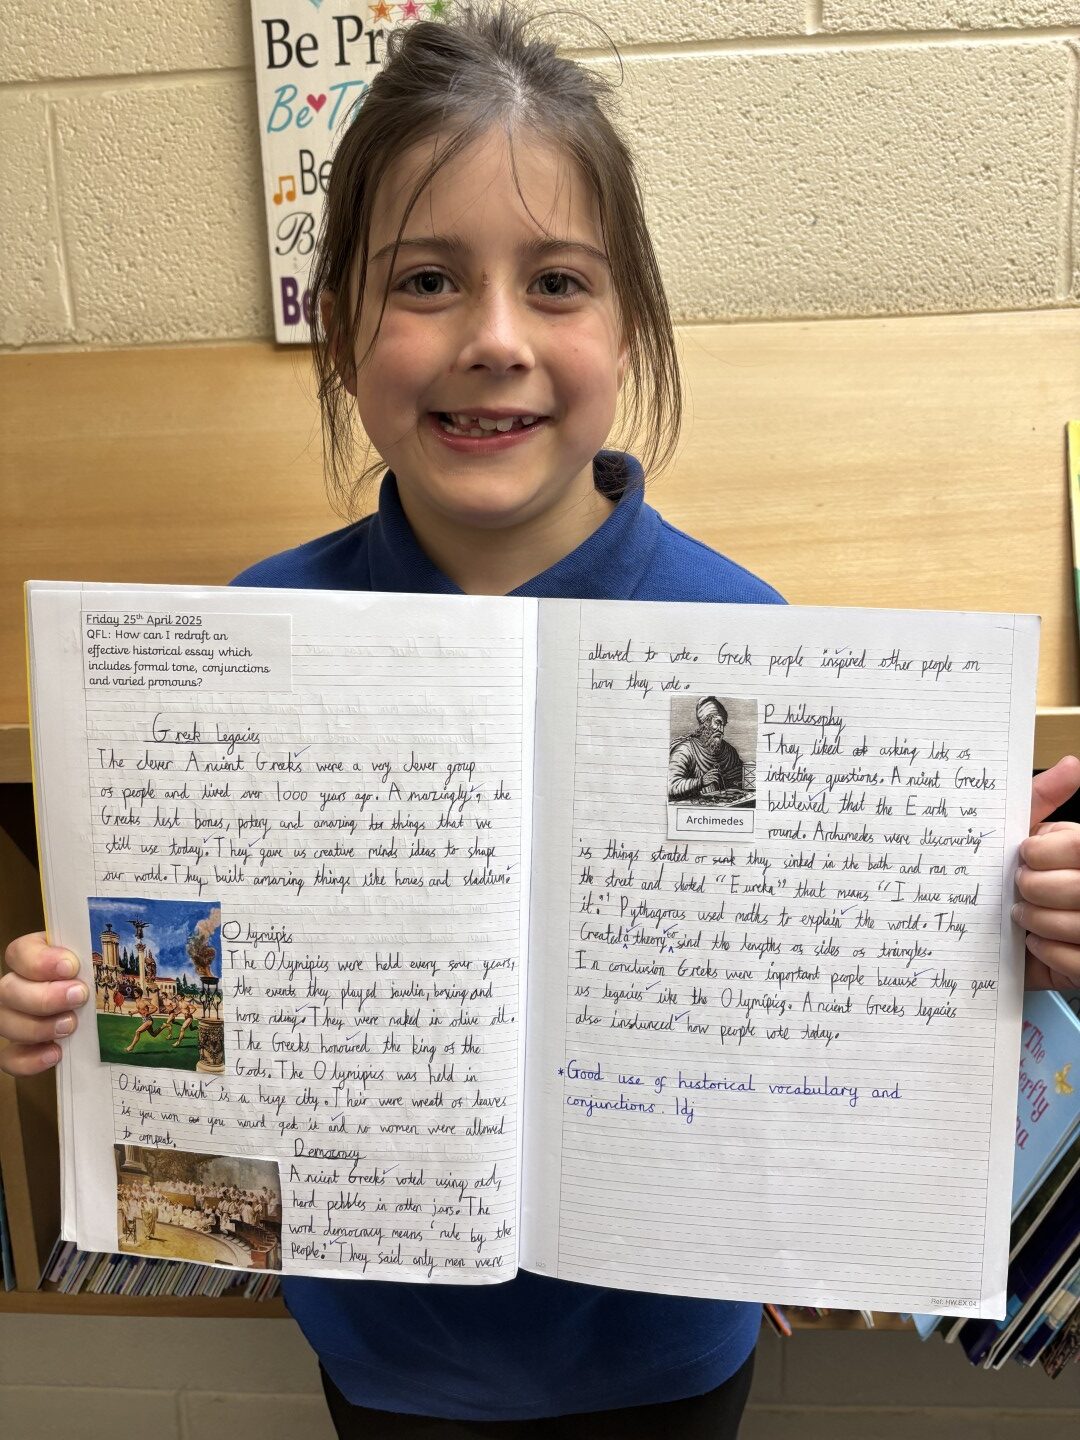 Be Pr
Be Th
Be
B
Be
Friday 25th April 2025
QFL: How can I redraft an
effective historical essay which
includes formal tone, conjunctions
and varied pronouns?
Greek Legacies
The clever Ancient Greeks were a very clever group
of people and lived over 1000 years ago. Amazingly, the
Greeks left bones, potery and amazing things that we
still use today. They gave us creative minds ideas to shape
our world. They built amazing things like houes and stadiums.
Olympis
The Olymipics were held every four years,
the events they played javelin, boxing and
horse riding. They were naked in olive oil.
The Greeks honoured the king of the
Gods. The Olymipics was held in
Olimpia Which is a huge city. Their were wreath of leaves
if you won you wound get it and no women were allowed
to compeat.
Democracy
Ancient Greeks voted using old,
hard pebbles in rotten jars. The
word democracy means 'rule by the
people.' They said only men were
allowed to vote. Greek people inspired other people on
how they vote.
Philosophy
They liked asking lots of
intresting questions. Ancient Greeks
beliieved that the Earth was
round. Archimedes were discouring
Archimedes
if things floated or sink they sinked in the bath and ran on
the street and shoted "Eureka" that means "I have found
it." Pythagorus used maths to explain the world. They
created a theory to find the lengths of sides of triangles.
In conclusion Greeks were important people because they gave
us legacies like the Olymipics. Ancient Greeks legacies
also insfunced how people vote today.
*Good use of historical vocabulary and
conjunctions. Idj
Ref: HW.EX.04
The